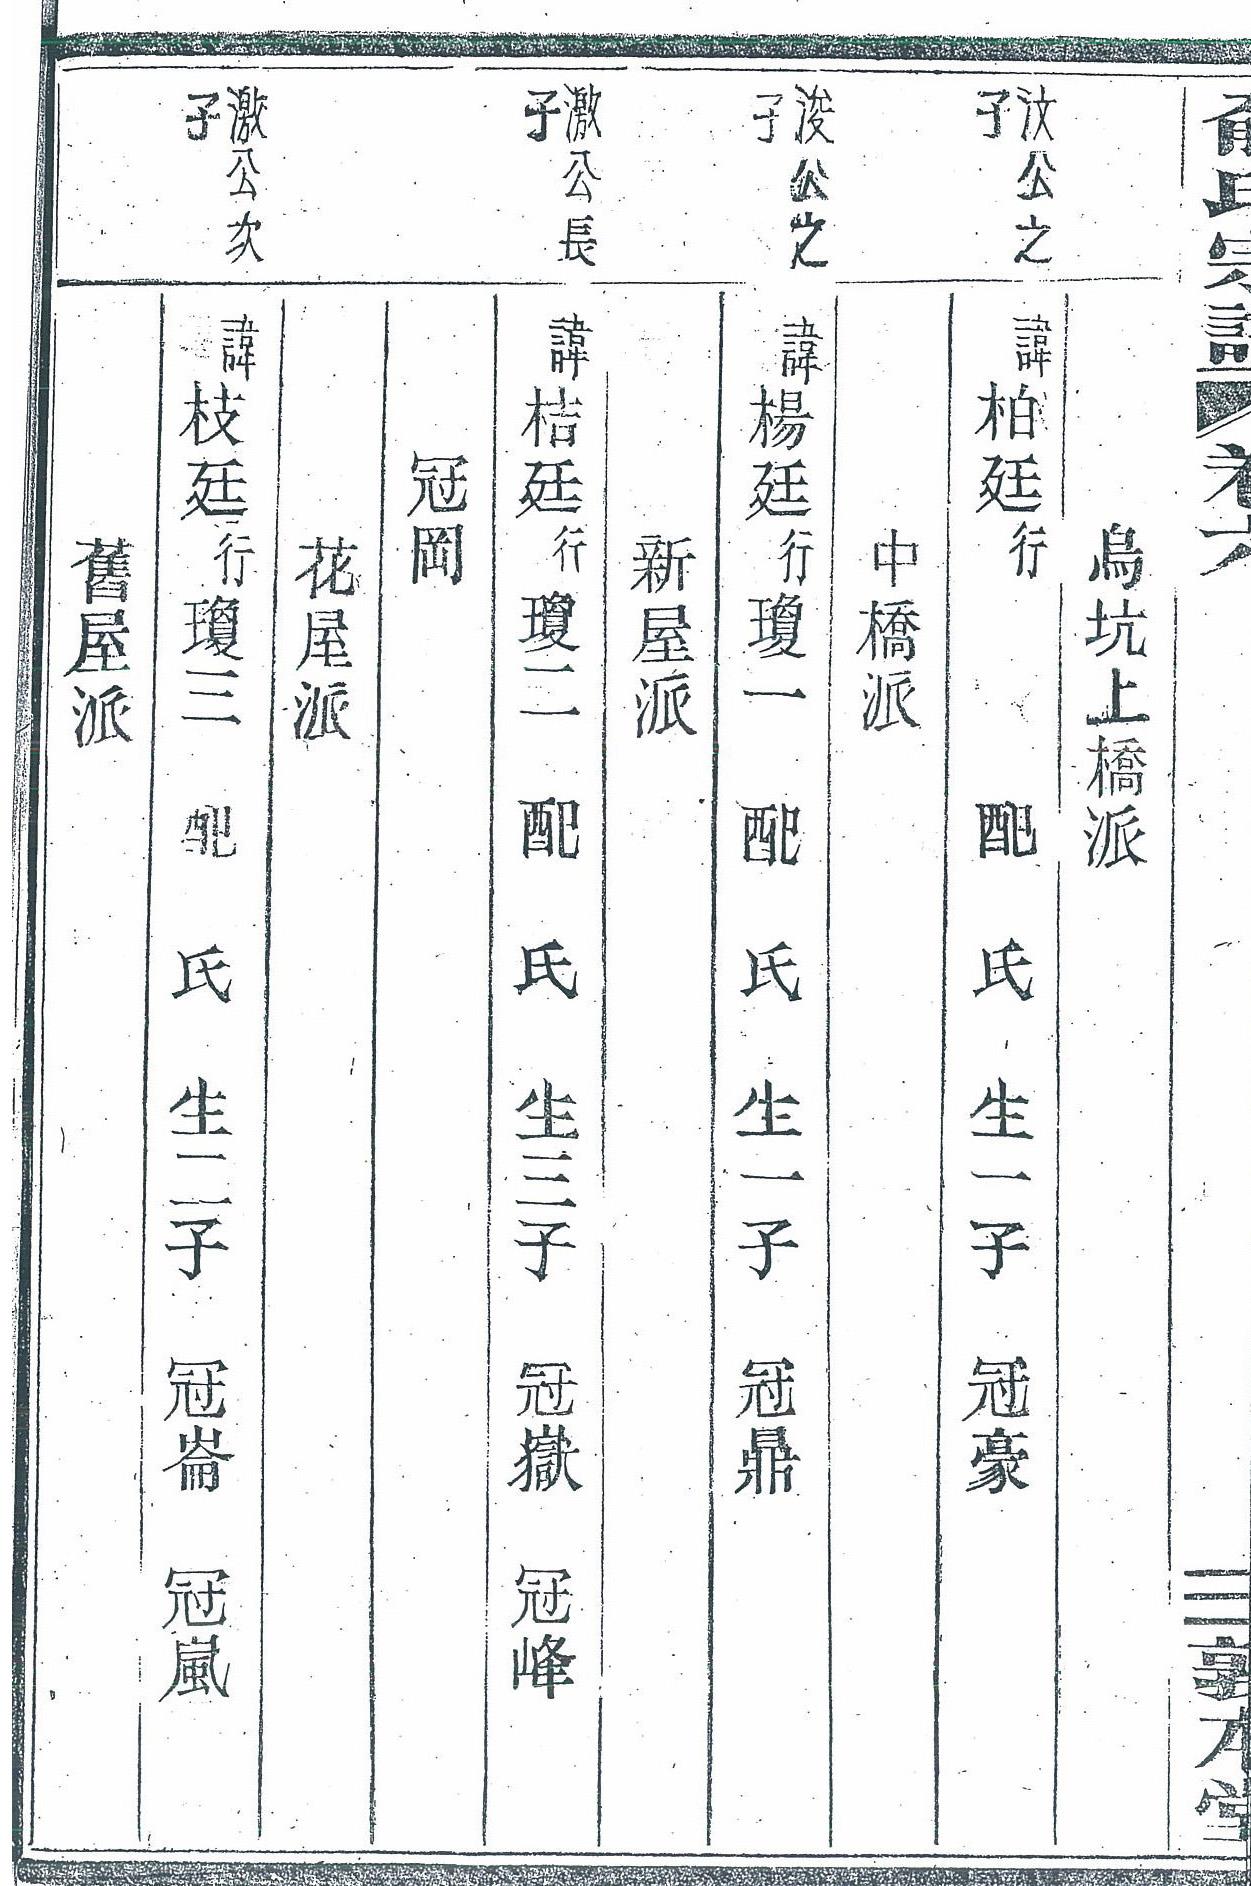 俞氏宗譜 卷六
三 敦本堂
烏坑上橋派
汶公之
子
諱柏廷行 配 氏 生一子 冠豪
中橋派
浚公之
子
諱楊廷行瓊一 配 氏 生一子 冠鼎
新屋派
激公長
子
諱桔廷行瓊二 配 氏 生三子 冠嶽 冠峰
冠岡
花屋派
激公次
子
諱枝廷行瓊三 配 氏 生二子 冠崙 冠嵐
舊屋派